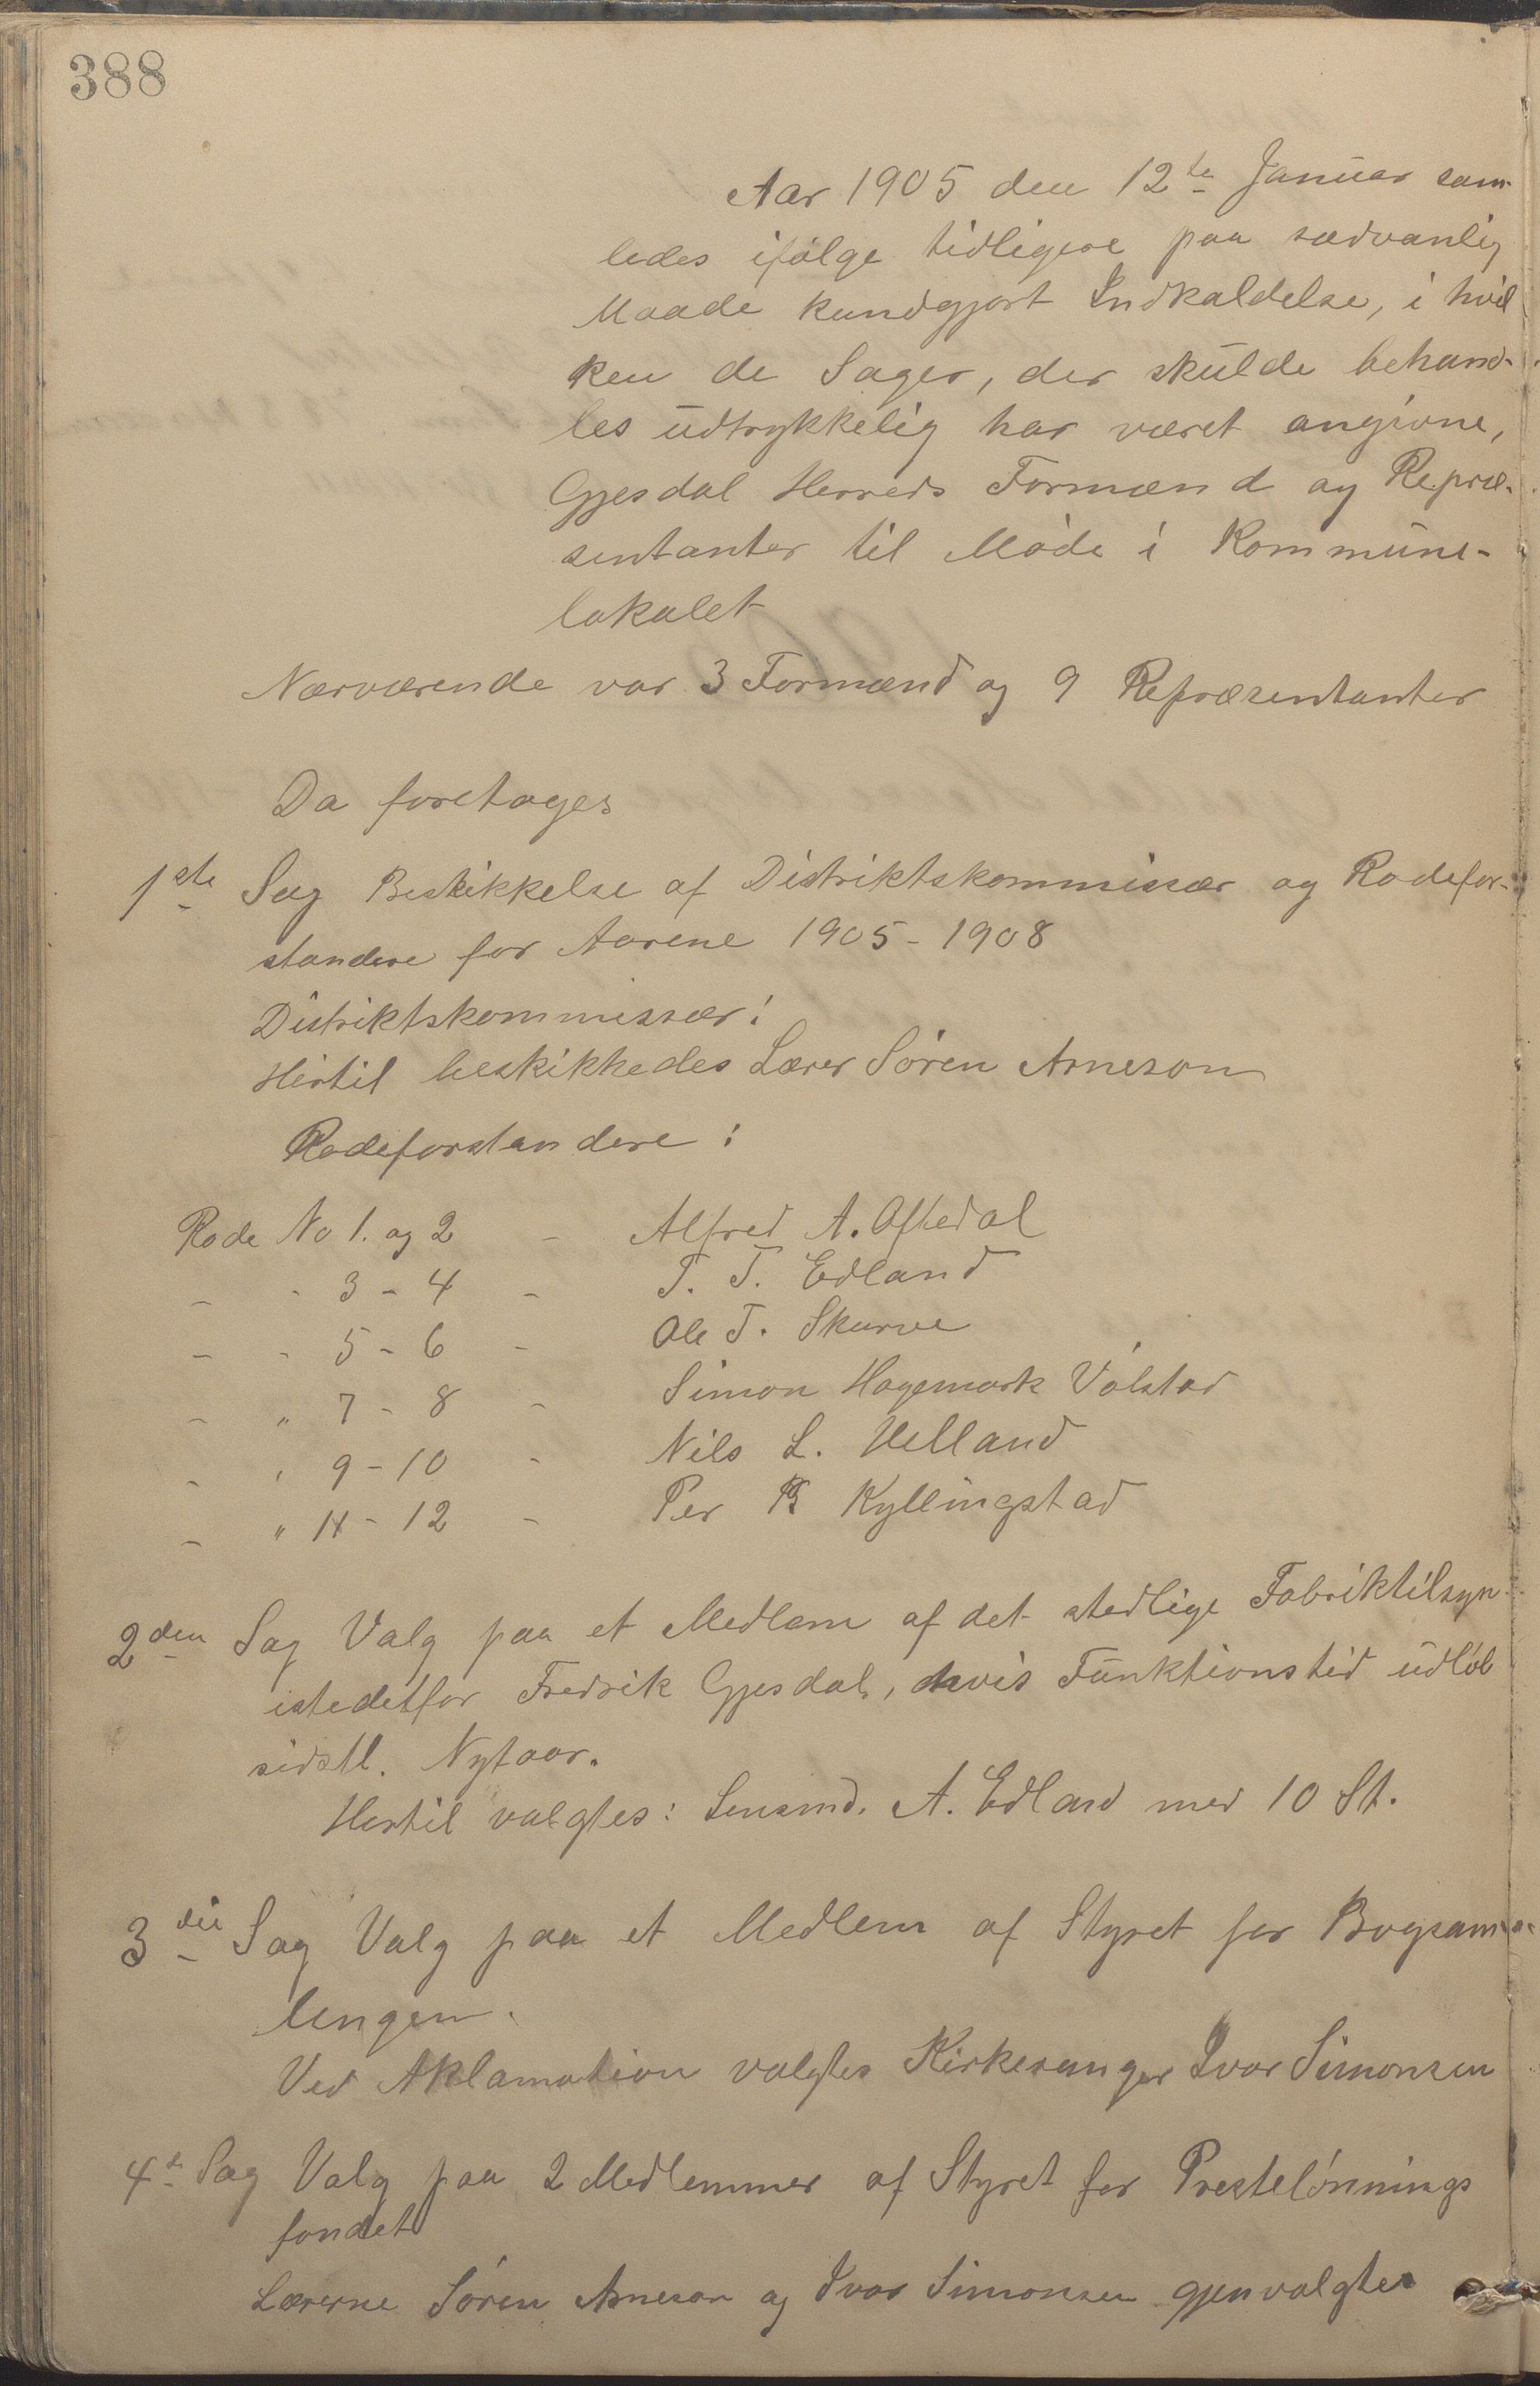 388
Aar 1905 den 12te Januar sam-
ledes ifølge tidligere paa sædvanlig
Maade kundgjort Indkaldelse, i hvil
ken de Sager, der skulde behand-
les udtrykkelig har været angivne,
Gjesdal Herreds Formænd og Repræ-
sentanter til Møde i Kommune-
lokalet
Nærværende var 3 Formænd og 9 Repræsentanter
Da foretages
1ste Sag Beskikkelse af Distriktskommissær og Rodefor-
standere for Aarene 1905-1908
Distriktskommissær:
Hertil beskikkedes Lærer Søren Arneson
Rodeforstandere:
Rode No 1. og 2 - Alfred A. Oftedal
- - 3 - 4 - T. T. Edland
- - 5 - 6 - Ole T. Skurve
- " 7 - 8 - Simon Hagemark Vølstad
- " 9 - 10 - Nils L. Helland
- " 11 - 12 - Per B Kyllingstad
2den Sag Valg paa et Medlem af det stedlige Fabriktilsyn
istedetfor Fredrik Gjesdal, hvis Funktionstid udløb
sidstl. Nytaar.
Hertil valgtes: Lensmd. A. Edland med 10 St.
3die Sag Valg paa et Medlem af Styret for Bogsam-
lingen.
Ved Aklamation valgtes Kirkesanger Ivar Simonsen
4de Sag Valg paa 2 Medlemmer af Styret for Prestelønnings
fondet
Lærerne Søren Arneson og Ivar Simonsen gjenvalgtes